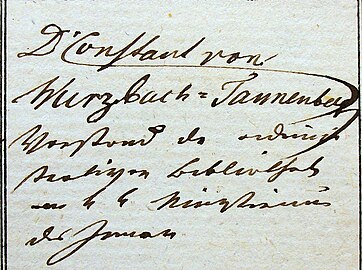 Dr Constant von
Wurzbach=Tannenberg
Vorstand der admini
strativen Bibliothek
im k k Ministerium
des Innern